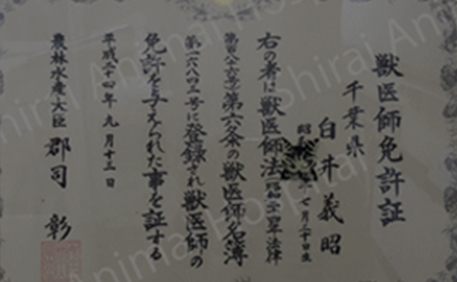 獣医師免許証
千葉県
白井義昭
年七月三十日生
右の者は獣医師法(昭和二十四年法律
第百八十六号)第六条の獣医師名簿
第二六八四三号に登録され獣医師の
免許を与えられた事を証する
平成十四年九月十三日
農林水産大臣 郡司 彰
Shirai Animal Hospital